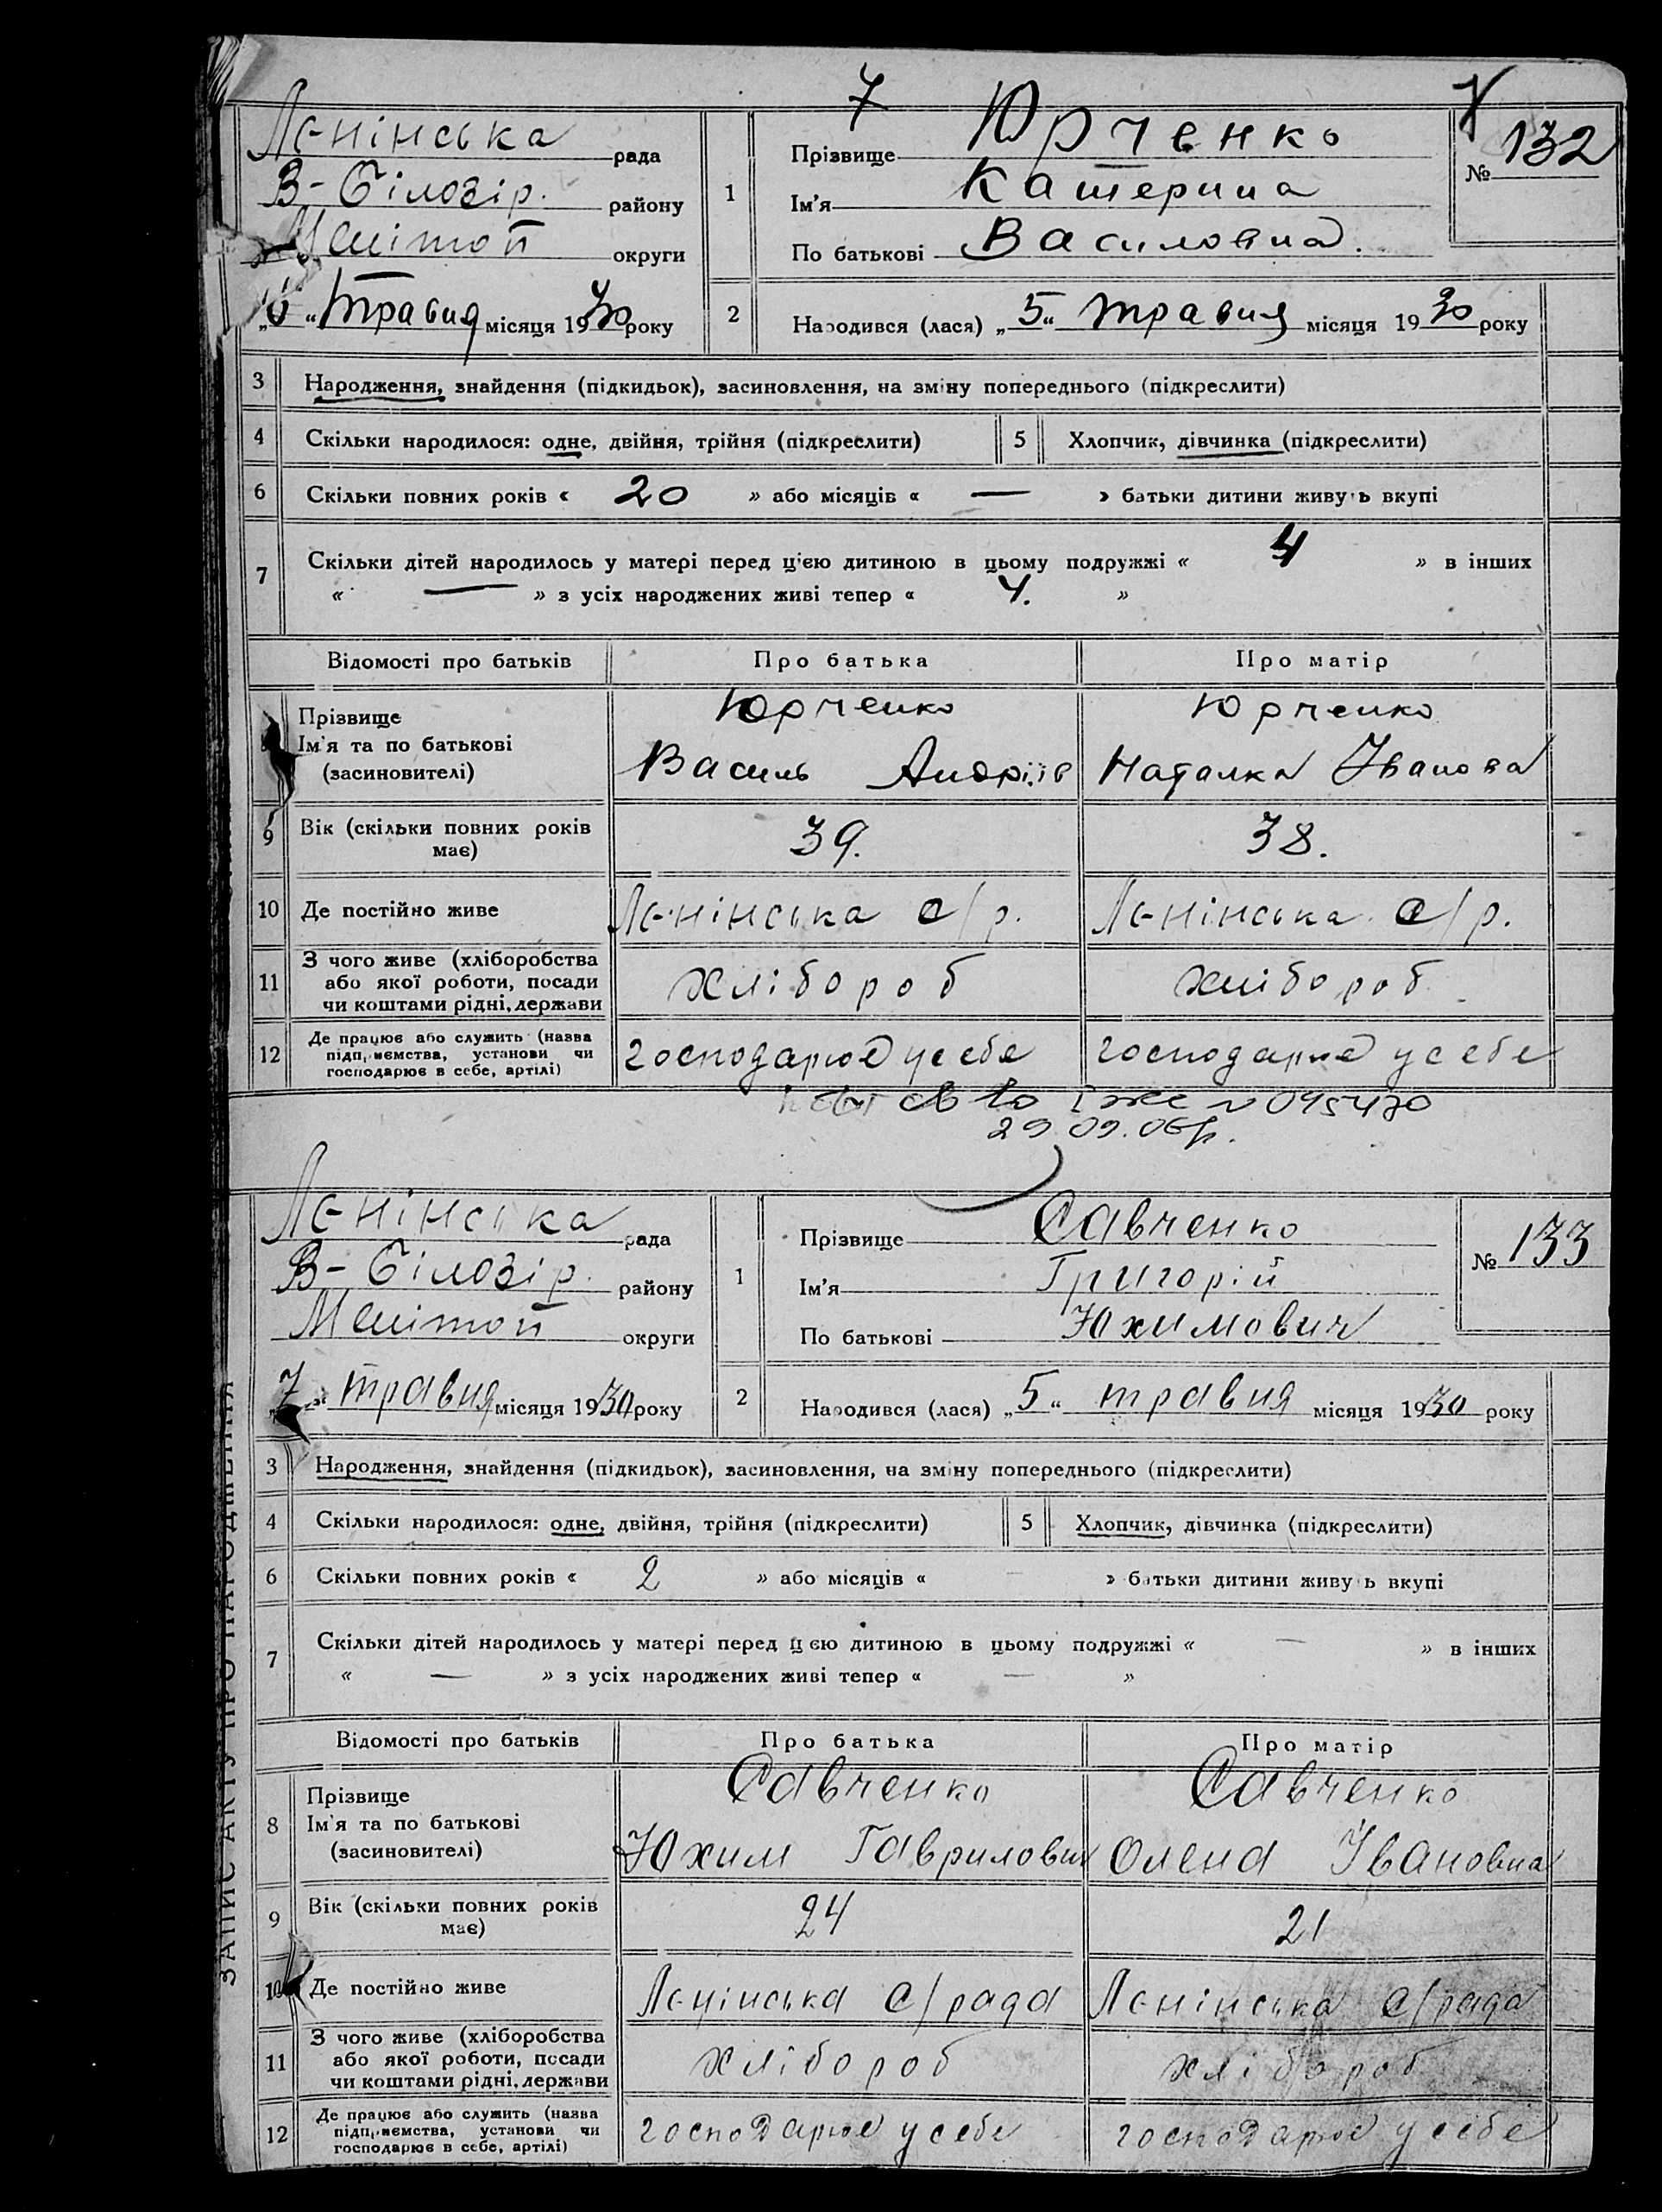 7
Ленінська рада
В-Білозір. району
Меліто п округи
„6“ травня місяця 1930 року
1
Прізвище Юрченко
Ім'я Катерина
По батькові Василовна.
№ 132
2
Народився (лася) „5“ травня місяця 1930 року
3 Народження, знайдення (підкидьок), засиновлення, на зміну попереднього (підкреслити)
4 Скільки народилося: одне, двійня, трійня (підкреслити) 5 Хлопчик, дівчинка (підкреслити)
6 Скільки повних років « 20 » або місяців « — » батьки дитини живуть вкупі
7 Скільки дітей народилось у матері перед цією дитиною в цьому подружжі « 4 » в інших
« — » з усіх народжених живі тепер « 4. »
Відомості про батьків Про батька Про матір
Прізвище Юрченко Юрченко
Ім'я та по батькові
(засиновителі) Василь Андріїв Наталка Іванова
9 Вік (скільки повних років має) 39. 38.
10 Де постійно живе Ленінська с/р. Ленінська с/р.
11 З чого живе (хліборобства
або якої роботи, посади
чи коштами рідні, держави хлібороб хлібороб
12 Де працює або служить (назва
підприємства, установи чи
господарює в себе, артілі) господарює у себе господарює у себе
N 095470
29.09.06р.
Ленінська рада
В-Білозір. району
Меліто п округи
„7“ травня місяця 1930 року
1
Прізвище Савченко
Ім'я Григорій
По батькові Юхимович
№ 133
2
Народився (лася) „5“ травня місяця 1930 року
3 Народження, знайдення (підкидьок), засиновлення, на зміну попереднього (підкреслити)
4 Скільки народилося: одне, двійня, трійня (підкреслити) 5 Хлопчик, дівчинка (підкреслити)
6 Скільки повних років « 2 » або місяців « — » батьки дитини живуть вкупі
7 Скільки дітей народилось у матері перед цією дитиною в цьому подружжі « — » в інших
« — » з усіх народжених живі тепер « — »
Відомості про батьків Про батька Про матір
8 Прізвище Савченко Савченко
Ім'я та по батькові
(засиновителі) Юхим Гаврилович Олена Івановна
9 Вік (скільки повних років має) 24 21
10 Де постійно живе Ленінська с/рада Ленінська с/рада
11 З чого живе (хліборобства
або якої роботи, посади
чи коштами рідні, держави хлібороб хлібороб
12 Де працює або служить (назва
підприємства, установи чи
господарює в себе, артілі) господарює у себе господарює у себе
ЗАПИС АКТУ ПРО НАРОДЖЕННЯ